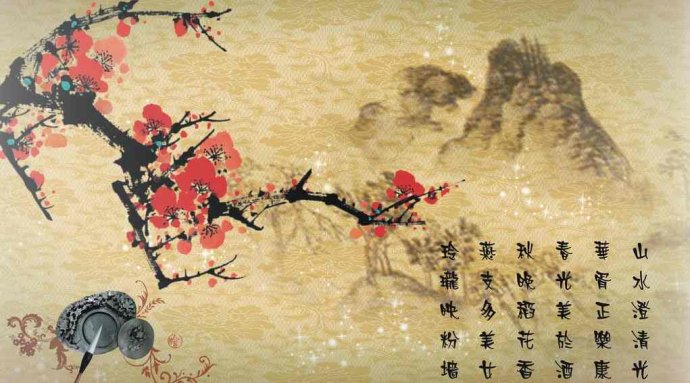 山水澄清光
華胥正樂康
春光美於酒
秋晚稻花香
燕支多美女
玲瓏映粉墻